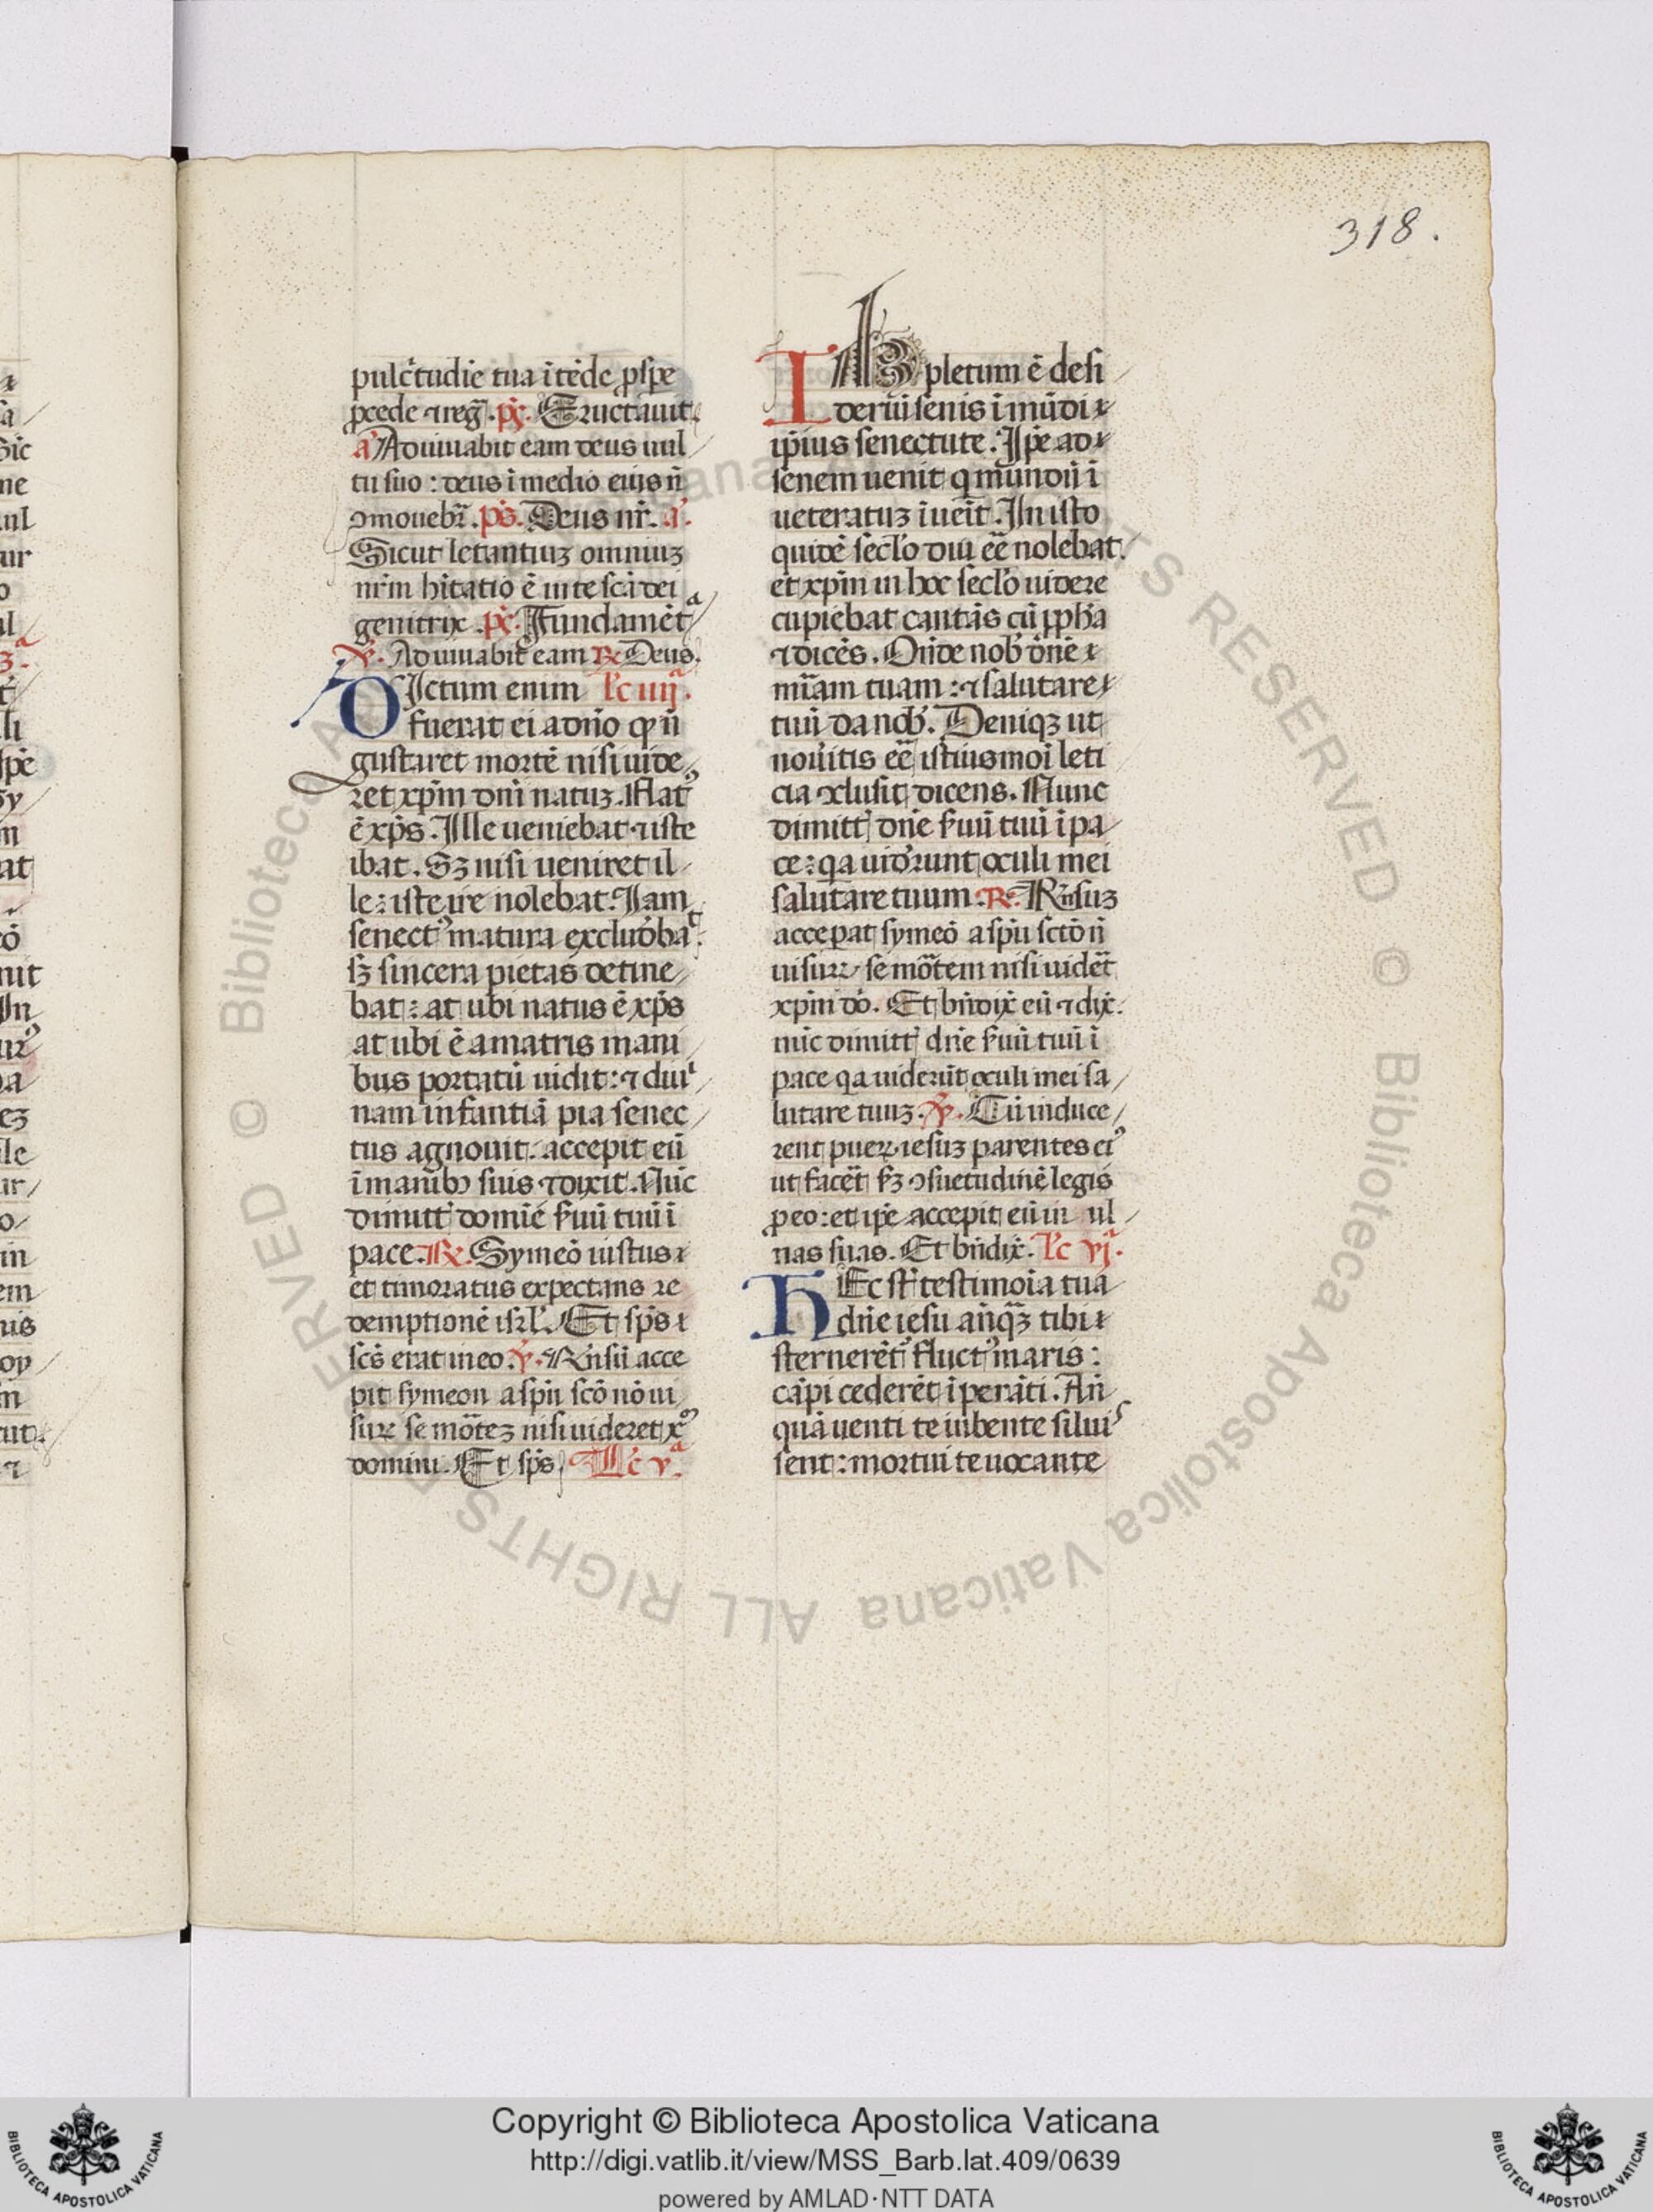 318.
pulc̄tudīe tua ītēde ꝓspe
ꝓcede ⁊ reḡ. p̄s. Eructauit.
a Adiuuabit eam deus uul
tu suo: deus ī medio eius n̄
ꝯmouebr̄. p̄s. Deus nr̄. a.
Sicut letantiuꝫ omniuꝫ
nr̄m hītatio ē in te sc̄a dei
genitrix. p̄s. Fundamēta
℣. Adiuuabit eam ℟ Deus.
DIctum enim lc̄ iiijª.
fuerat ei a dn̄o qꝫ n̄
gustaret mortē nisi uide
ret xp̄m dn̄i natuꝫ. Nat9
ē xp̄s. Ille ueniebat ⁊ iste
ibat. Sꝫ nisi ueniret il
le: iste ire nolebat. Iam
senect9 matura excludēbat:
sꝫ sincera pietas detine
bat: at ubi natus ē xp̄s
at ubi ē a matris mani
bus portatū uidit: ⁊ diui
nam infantiā pia senec
tus agnouit: accepit eū
ī manibꝫ suis ⁊ dixit. Nūc
dimitt̄ domīe s̄uū tuū ī
pace. ℟. Symeō iustus
et timoratus expectans re
demptionē isrl̄. Et sp̄s
sc̄s erat in eo. ℣. R̄nsū acce
pit symeon a sp̄u sc̄o nō ui
sur̄ se mōteꝫ nisi uideret x̄
domini. Et sp̄s. Lc̄ vª.
IMpletum ē desi
deriū senis ī mūdi
ip̄ius senectute. Ip̄e ad
senem uenit q mundū ī
ueteratuꝫ īueīt. In isto
quidē sec̄lo diu eē nolebat.
et xp̄m in hoc sec̄lo uidere
cupiebat cantās cū ꝓph̄a
⁊ dicēs. On̄de nob̄ dn̄e
mīam tuam: ⁊ salutare
tuū da nob̄. Deniqꝫ ut
nouitis eē istiusmoī leti
cia ꝯclusit dicens. Nunc
dimitt̄ dn̄e s̄uū tuū ī pa
ce: qa uidēruntoculi mei
salutare tuum. ℟. R̄nsuꝫ
acceperat symeō a sp̄u sc̄tō n̄
uisur̄ se mōtem nisi uidēt
xp̄m dō. Et bn̄dix̄ eū ⁊ dix̄.
nūc dimitt̄ dn̄e s̄uū tuū ī
pace qa uiderūt oculi mei sa
lutare tuuꝫ. ℣. Cū induce
rent pueꝝ iesuꝫ parentes ei9
ut facēt s̄ꝫ ꝯsuetudinē legis
ꝓ eo: et ip̄e accepit eū in ul
nas suas. Et bn̄dix̄. lc̄ vjª.
HEc st̄ testimoīa tua
dn̄e iesu an̄qꝫ tibi
sternerēt fluct9 maris:
cāpi cederēt īperāti. An̄
quā uenti te iubente silui
sent: mortui te uocante
Copyright © Biblioteca Apostolica Vaticana
http://digi.vatlib.it/view/MSS_Barb.lat.409/0639
powered by AMLAD·NTT DATA
BIBLIOTECA APOSTOLICA VATICANA
BIBLIOTECA APOSTOLICA VATICANA
© Biblioteca Apostolica Vaticana ALL RIGHTS RESERVED © Biblioteca Apostolica Vaticana ALL RIGHTS RESERVED